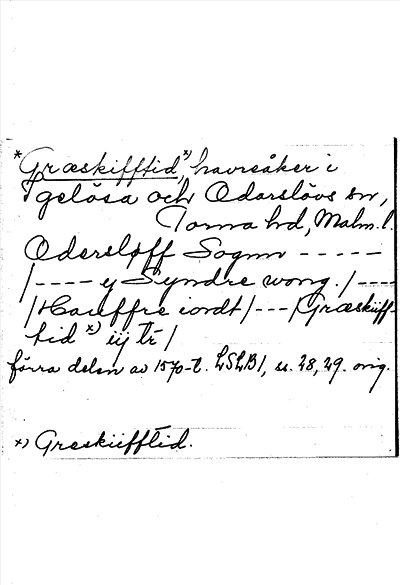 *Græskifftid,x) havreåker i
Igelösa och Odarslövs sn,
Torna hd, Malm. l.
Odersløff Sognn -----
/---- y Syndre wong. / ----
/Hauffre iordt/ --- /Græskiiff-
tid x) iij tr /
förra delen av 1570-t. LSLB1, ss. 28, 29. orig.
x) Græskiifftid.